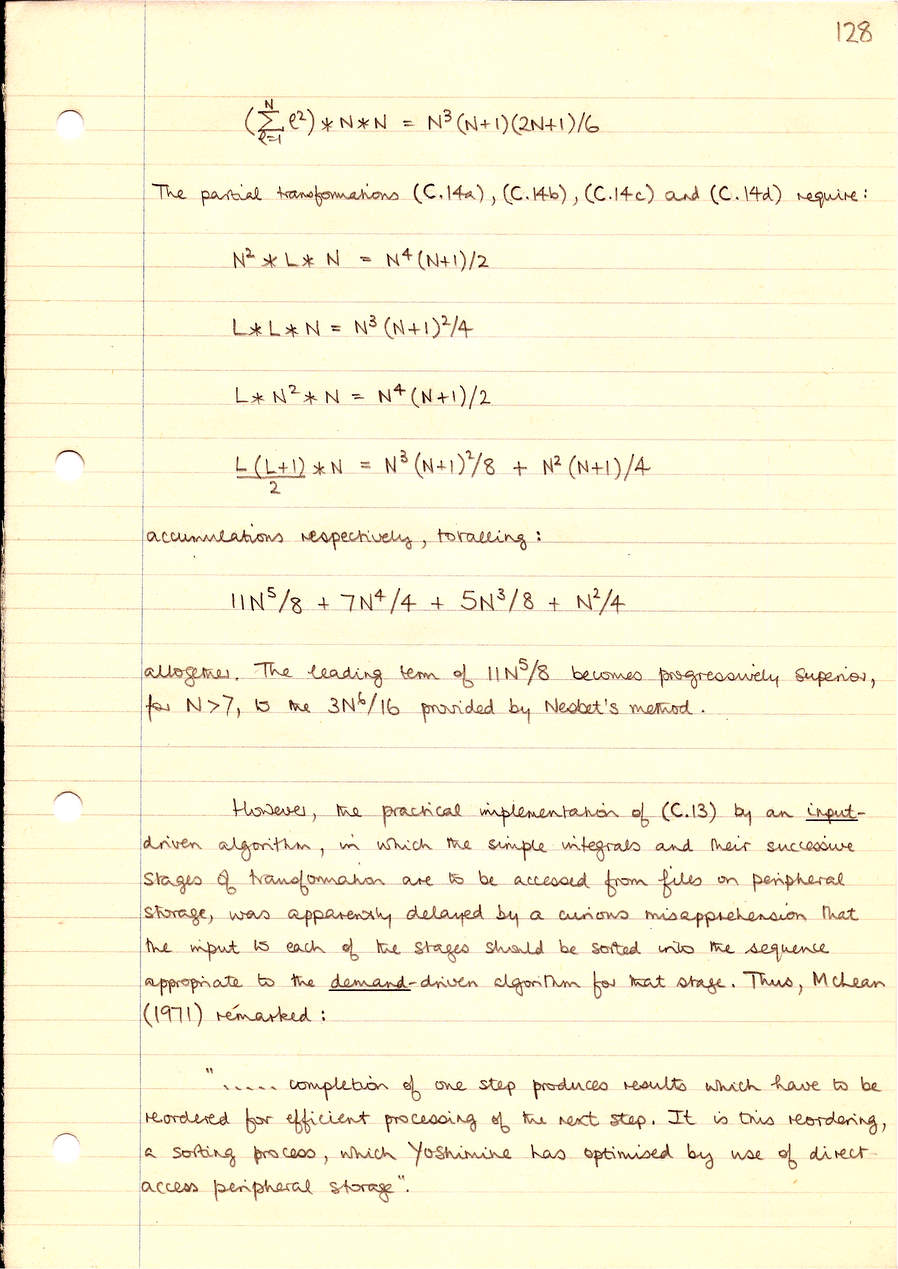 128
(∑_{ℓ=1}^{N} ℓ²) * N * N = N³(N+1)(2N+1)/6
The partial transformations (C.14a), (C.14b), (C.14c) and (C.14d) require:
N² * L * N = N⁴(N+1)/2
L * L * N = N³(N+1)²/4
L * N² * N = N⁴(N+1)/2
L(L+1)/2 * N = N³(N+1)²/8 + N²(N+1)/4
accumulations respectively, totalling:
11N⁵/8 + 7N⁴/4 + 5N³/8 + N²/4
altogether. The leading term of 11N⁵/8 becomes progressively superior,
for N>7, to the 3N⁶/16 provided by Nesbet's method.
However, the practical implementation of (C.13) by an input-
driven algorithm, in which the simple integrals and their successive
stages of transformation are to be accessed from files on peripheral
storage, was apparently delayed by a curious misapprehension that
the input to each of the stages should be sorted into the sequence
appropriate to the demand-driven algorithm for that stage. Thus, McLean
(1971) remarked:
"..... completion of one step produces results which have to be
reordered for efficient processing of the next step. It is this reordering,
a sorting process, which Yoshimine has optimised by use of direct-
access peripheral storage".